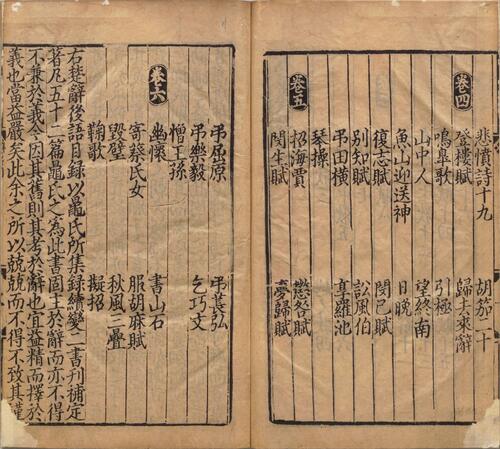 悲憤詩十九 胡笳二十
卷四 登樓賦 歸去來辭
鳴皋歌 引極
山中人 望終南
魚山迎送神 日晚
復志賦 閔己賦
別知賦 訟風伯
弔田橫 享羅池
琴操
卷五 招海賈 懲咎賦
閔生賦 夢歸賦
弔屈原 弔萇弘
弔樂毅 乞巧文
憎王孫
卷六 幽懷 書山石
寄蔡氏女 服胡麻賦
毀璧 秋風三疊
鞠歌 擬招
右楚辭後語目錄以鼂氏所集錄續變二書刊補定
著凡五十二篇鼂氏之為此書固主於辭而亦不得
不兼於義今因其舊則其考於辭也宜益精而擇於
義也當益嚴矣此余之所以兢兢而不得不致其謹